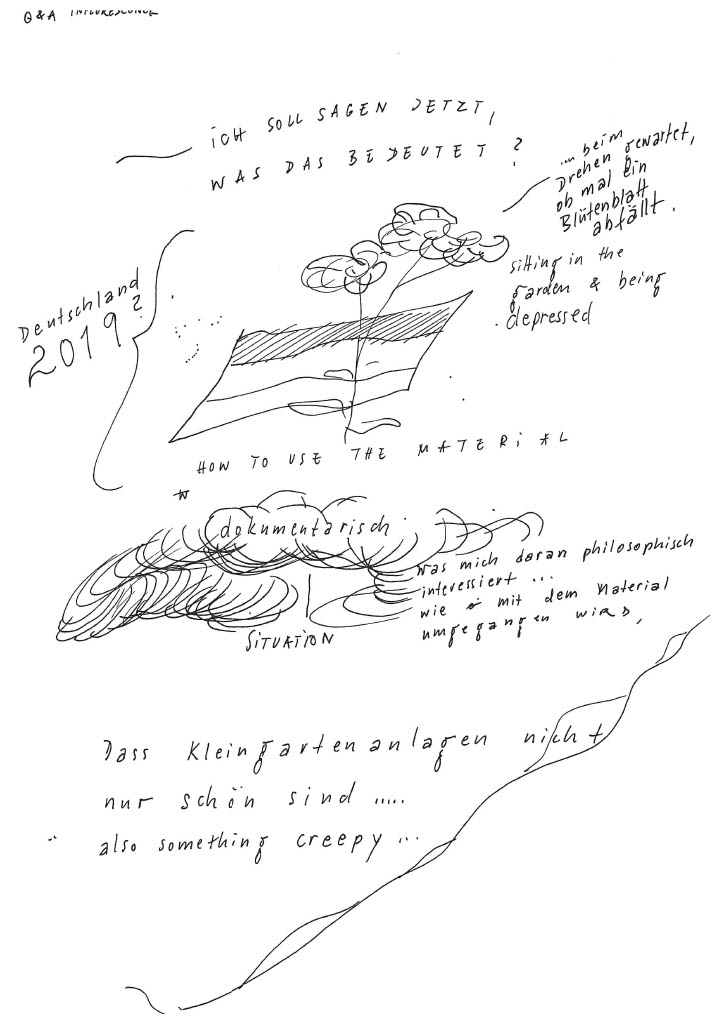 Q & A
ICH SOLL SAGEN JETZT,
WAS DAS BEDEUTET?
... beim
Drehen gewartet,
ob mal ein
Blütenblatt
abfällt.
sitting in the
garden & being
depressed
Deutschland
2019?
HOW TO USE THE MATERIAL
dokumentarisch
SITUATION
was mich daran philosophisch
interessiert ...
wie mit dem Material
umgegangen wird,
Dass Kleingartenanlagen nicht
nur schön sind .....
also something creepy ...